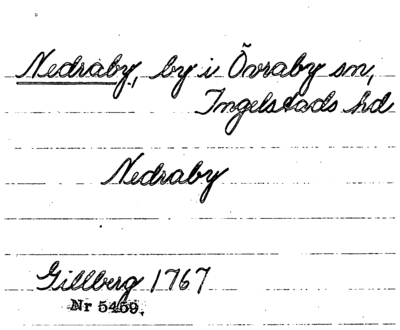 Nedraby, by i Övraby sn,
Ingelstads hd
Nedraby
Gillberg 1767
Nr 5459.